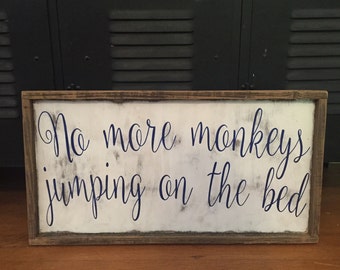 No more monkeys
jumping on the bed